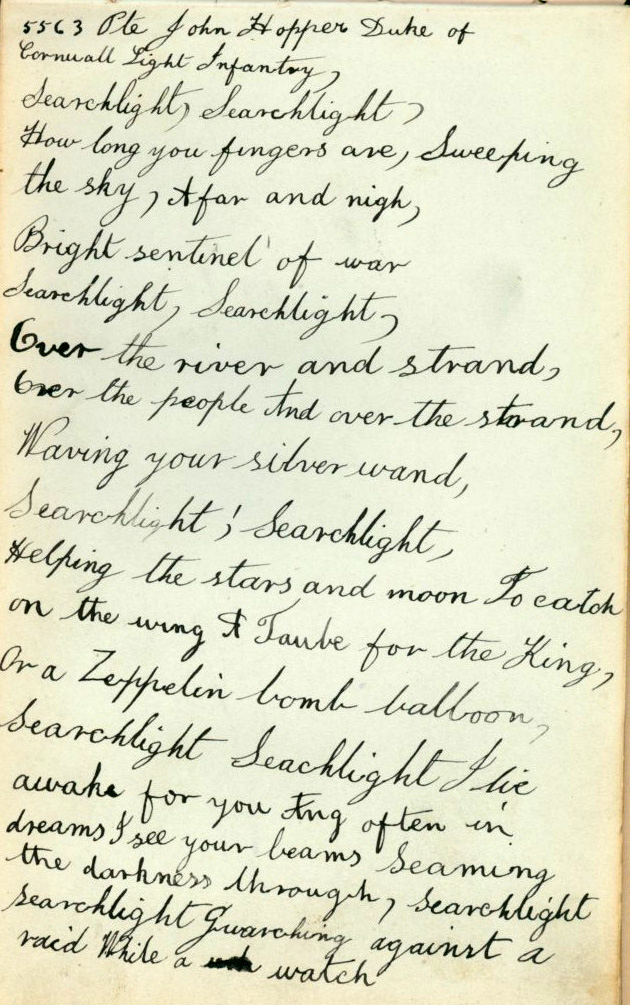 5563 Pte John Hopper Duke of
Cornwall Light Infantry,
Searchlight, Searchlight,
How long you fingers are, Sweeping
the sky, Afar and nigh,
Bright sentinel of war
Searchlight, Searchlight,
Over the river and strand,
Over the people And over the strand,
Waving your silver wand,
Searchlight, Searchlight,
Helping the stars and moon To catch
on the wing A Taube for the King,
Or a Zeppelin bomb balloon,
Searchlight Seachlight I lie
awake for you Ang often in
dreams I see your beams Seaming
the darkness through, Searchlight
searchlight Guarching against a
raid While a watch